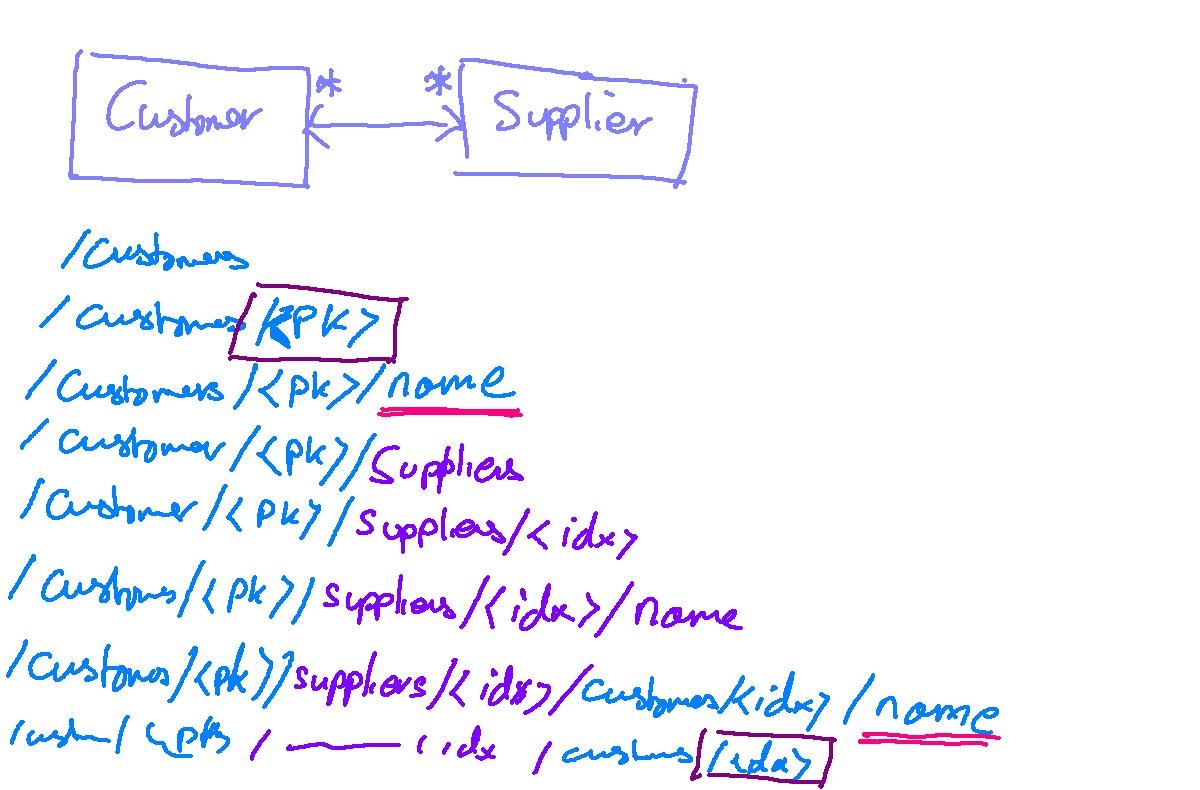 Customer * * Supplier
/customers
/customers/<PK>
/customers/<pk>/name
/customer/<pk>/suppliers
/customer/<pk>/suppliers/<idx>
/customers/<pk>/suppliers/<idx>/name
/customers/<pk>/suppliers/<idx>/customers/<idx>/name
/ / idx / /<idx>